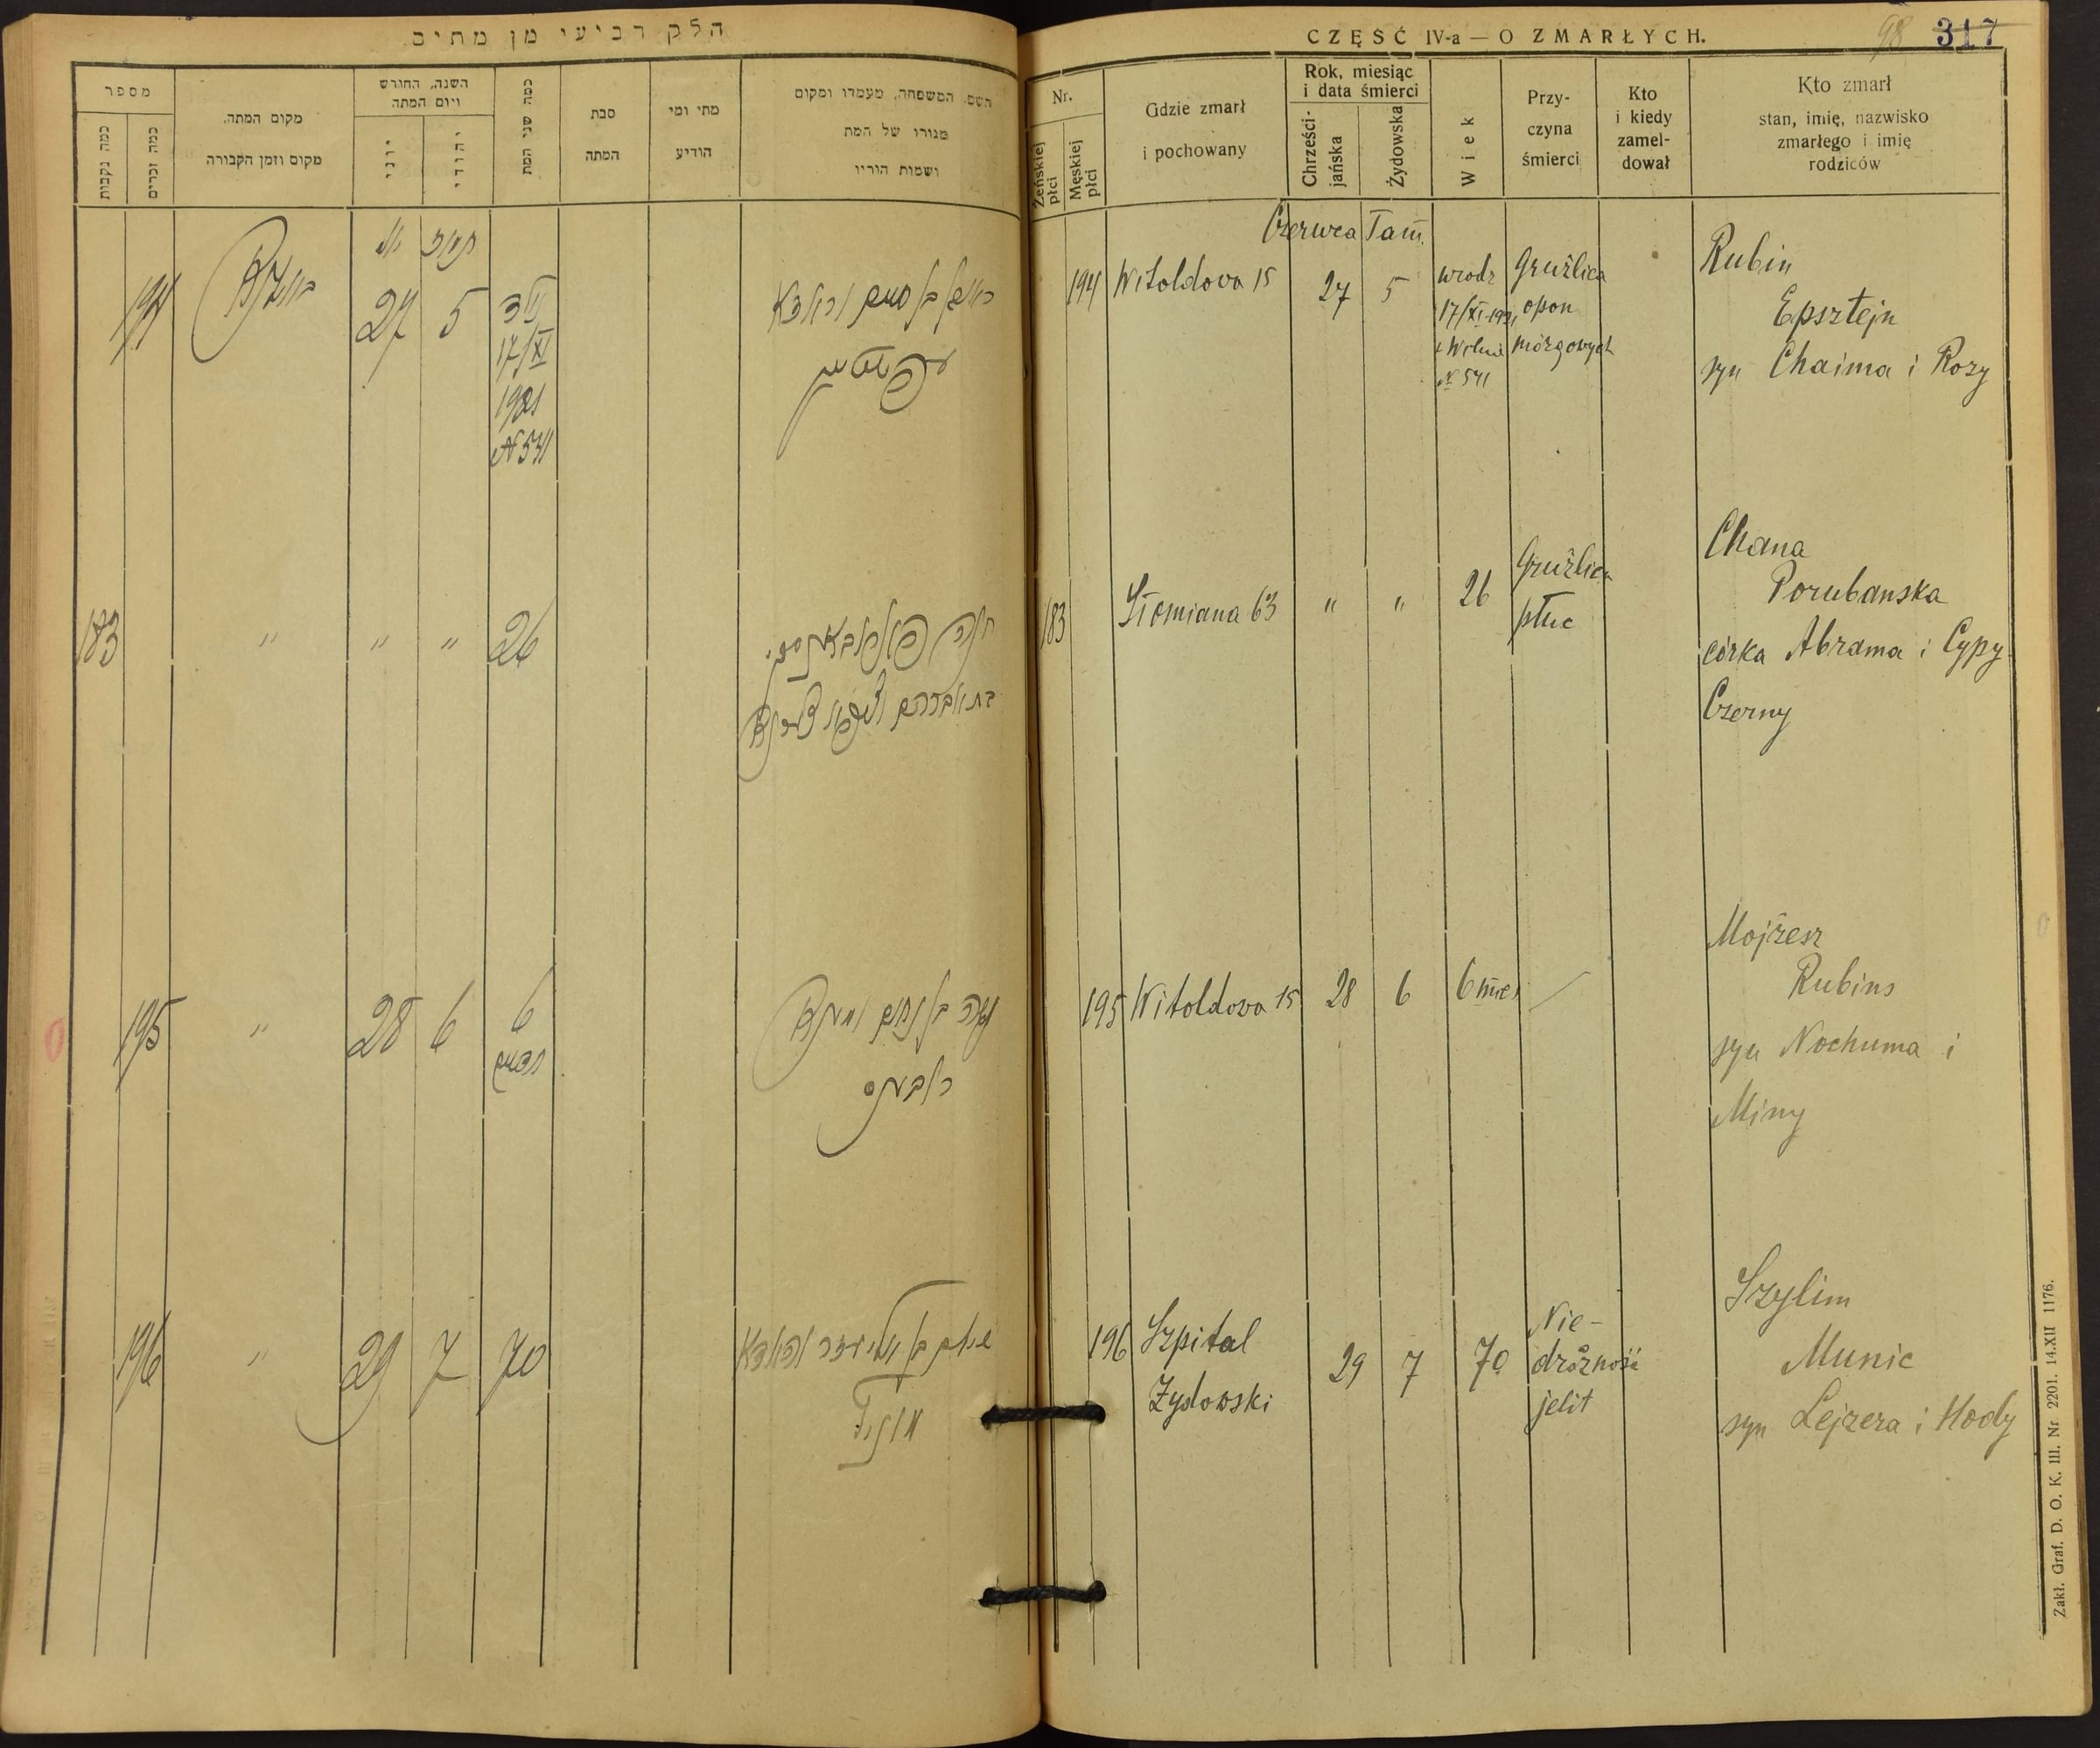 חלק רביעי מן מתים
מספר
כמה נקבות
כמה זכרים
מקום המתה,
מקום וזמן הקבורה
השנה, החודש
ויום המתה
יוני
יהודי
כמה שני המת
סבת
המתה
מתי ומי
הודיע
השם, המשפחה, מעמדו ומקום
מגורו של המת
ושמות הוריו
194
ווילנא
27
5
נולד
17/XI
1921
№ 541
ראובן בן חיים וראזא
עפשטיין
183
"
"
"
26
חנה
בת אברהם
195
"
28
6
6
חדשים
משה בן נחום ומינא
רובינס
196
"
29
7
70
בן אליעזר והאדא
מוניץ
CZĘŚĆ IV-a — O ZMARŁYCH.
98
317
Nr.
Żeńskiej płci
Męskiej płci
Gdzie zmarł
i pochowany
Rok, miesiąc
i data śmierci
Chrześci-
jańska
Żydowska
Wiek
Przy-
czyna
śmierci
Kto
i kiedy
zamel-
dował
Kto zmarł
stan, imię, nazwisko
zmarłego i imię
rodziców
Czerwca Tam.
194 Witoldova 15 27 5
wrodz
17/XI-1921
w Wilnie
№ 541
Gruźlica
opon
mózgowych
Rubin
Epsztejn
syn Chaima i Rozy
183 Słomiana 63 " " 26
Gruźlica
płuc
Chana
Porubanska
córka Abrama i Cypy
Czerny
195 Witoldova 15 28 6 6 mies —
Mojżesz
Rubins
syn Nochuma i
Miny
196 Szpital
Żydowski
29 7 70
Nie-
drożność
jelit
Szylim
Munic
syn Lejzera i Hody
Zakł. Graf. D. O. K. III. Nr 2201. 14.XII 1176.